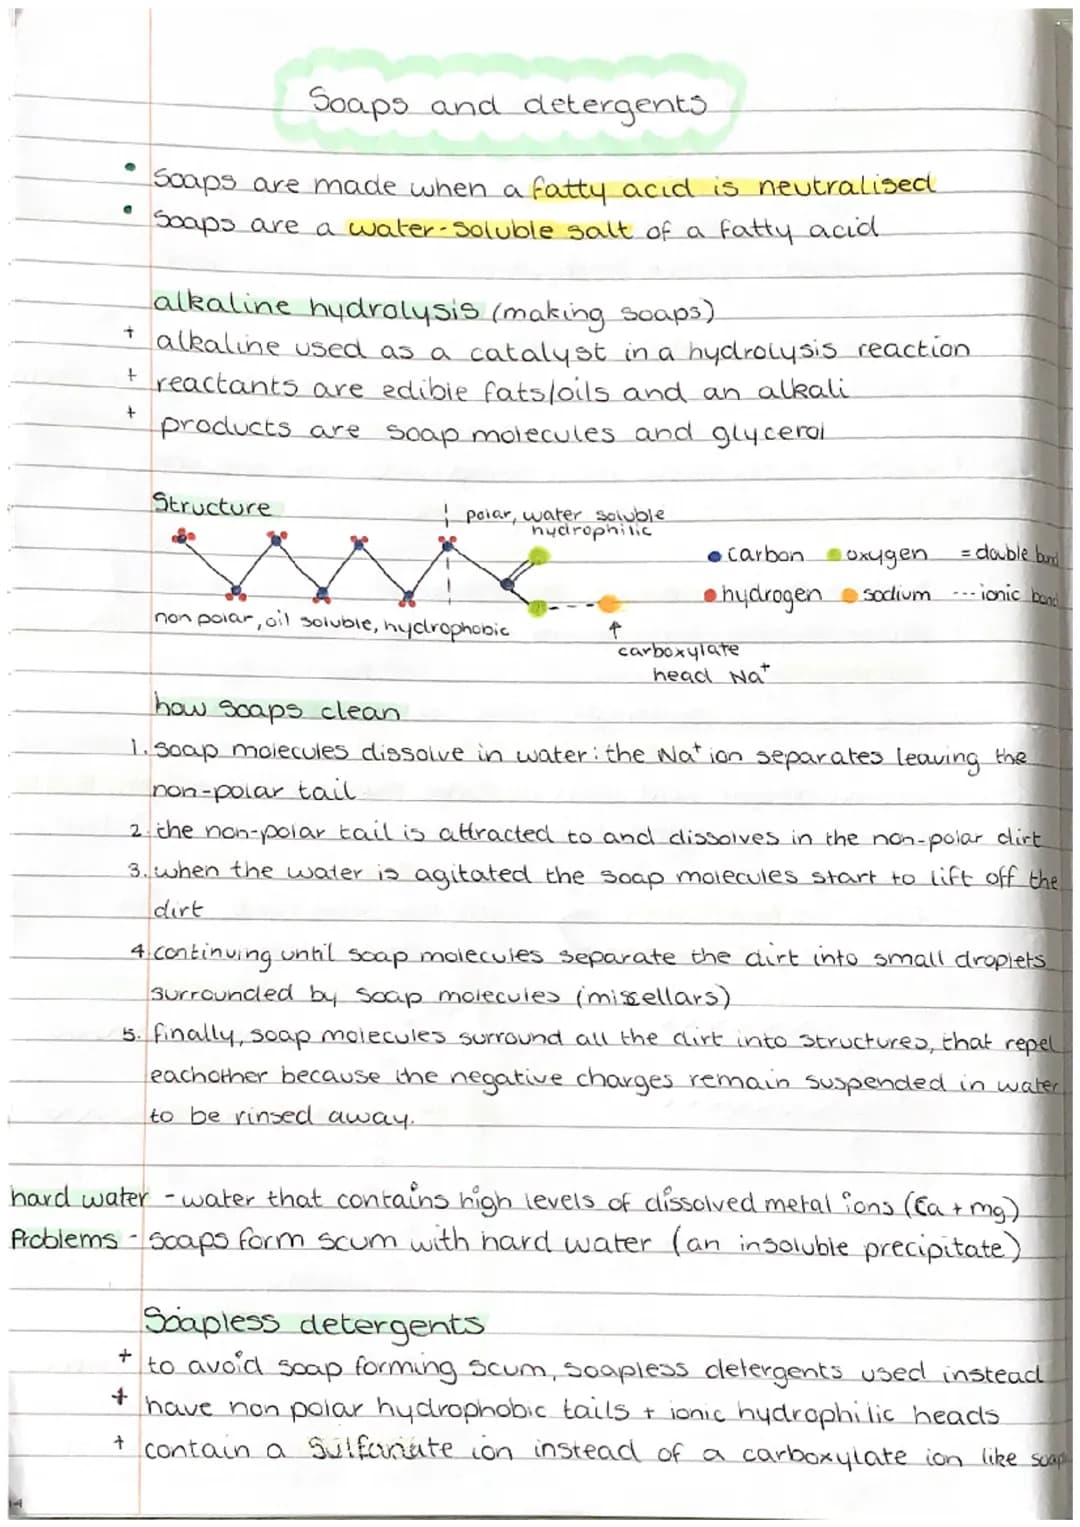 Soaps and detergents
• Soaps are made when a fatty acid is neutralised
• Soaps are a water-soluble salt of a fatty acid
alkaline hydrolysis (making soaps)
+ alkaline used as a catalyst in a hydrolysis reaction
+ reactants are edible fats/oils and an alkali
+ products are soap molecules and glycerol
Structure
polar, water soluble
hydrophilic
carbon oxygen = double bond
hydrogen sodium --- ionic bond
non polar, oil soluble, hydrophobic
↑
carboxylate
head Na⁺
how soaps clean
1. soap molecules dissolve in water: the Na⁺ ion separates leaving the
non-polar tail
2. the non-polar tail is attracted to and dissolves in the non-polar dirt
3. when the water is agitated the soap molecules start to lift off the
dirt
4. continuing until soap molecules separate the dirt into small droplets
surrounded by soap molecules (misellars)
5. finally, soap molecules surround all the dirt into structures, that repel
eachother because the negative charges remain suspended in water
to be rinsed away.
hard water - water that contains high levels of dissolved metal ions (Ca + mg)
Problems - soaps form scum with hard water (an insoluble precipitate)
Soapless detergents
+ to avoid soap forming scum, soapless detergents used instead
+ have non polar hydrophobic tails + ionic hydrophilic heads
+ contain a sulfanate ion instead of a carboxylate ion like soap